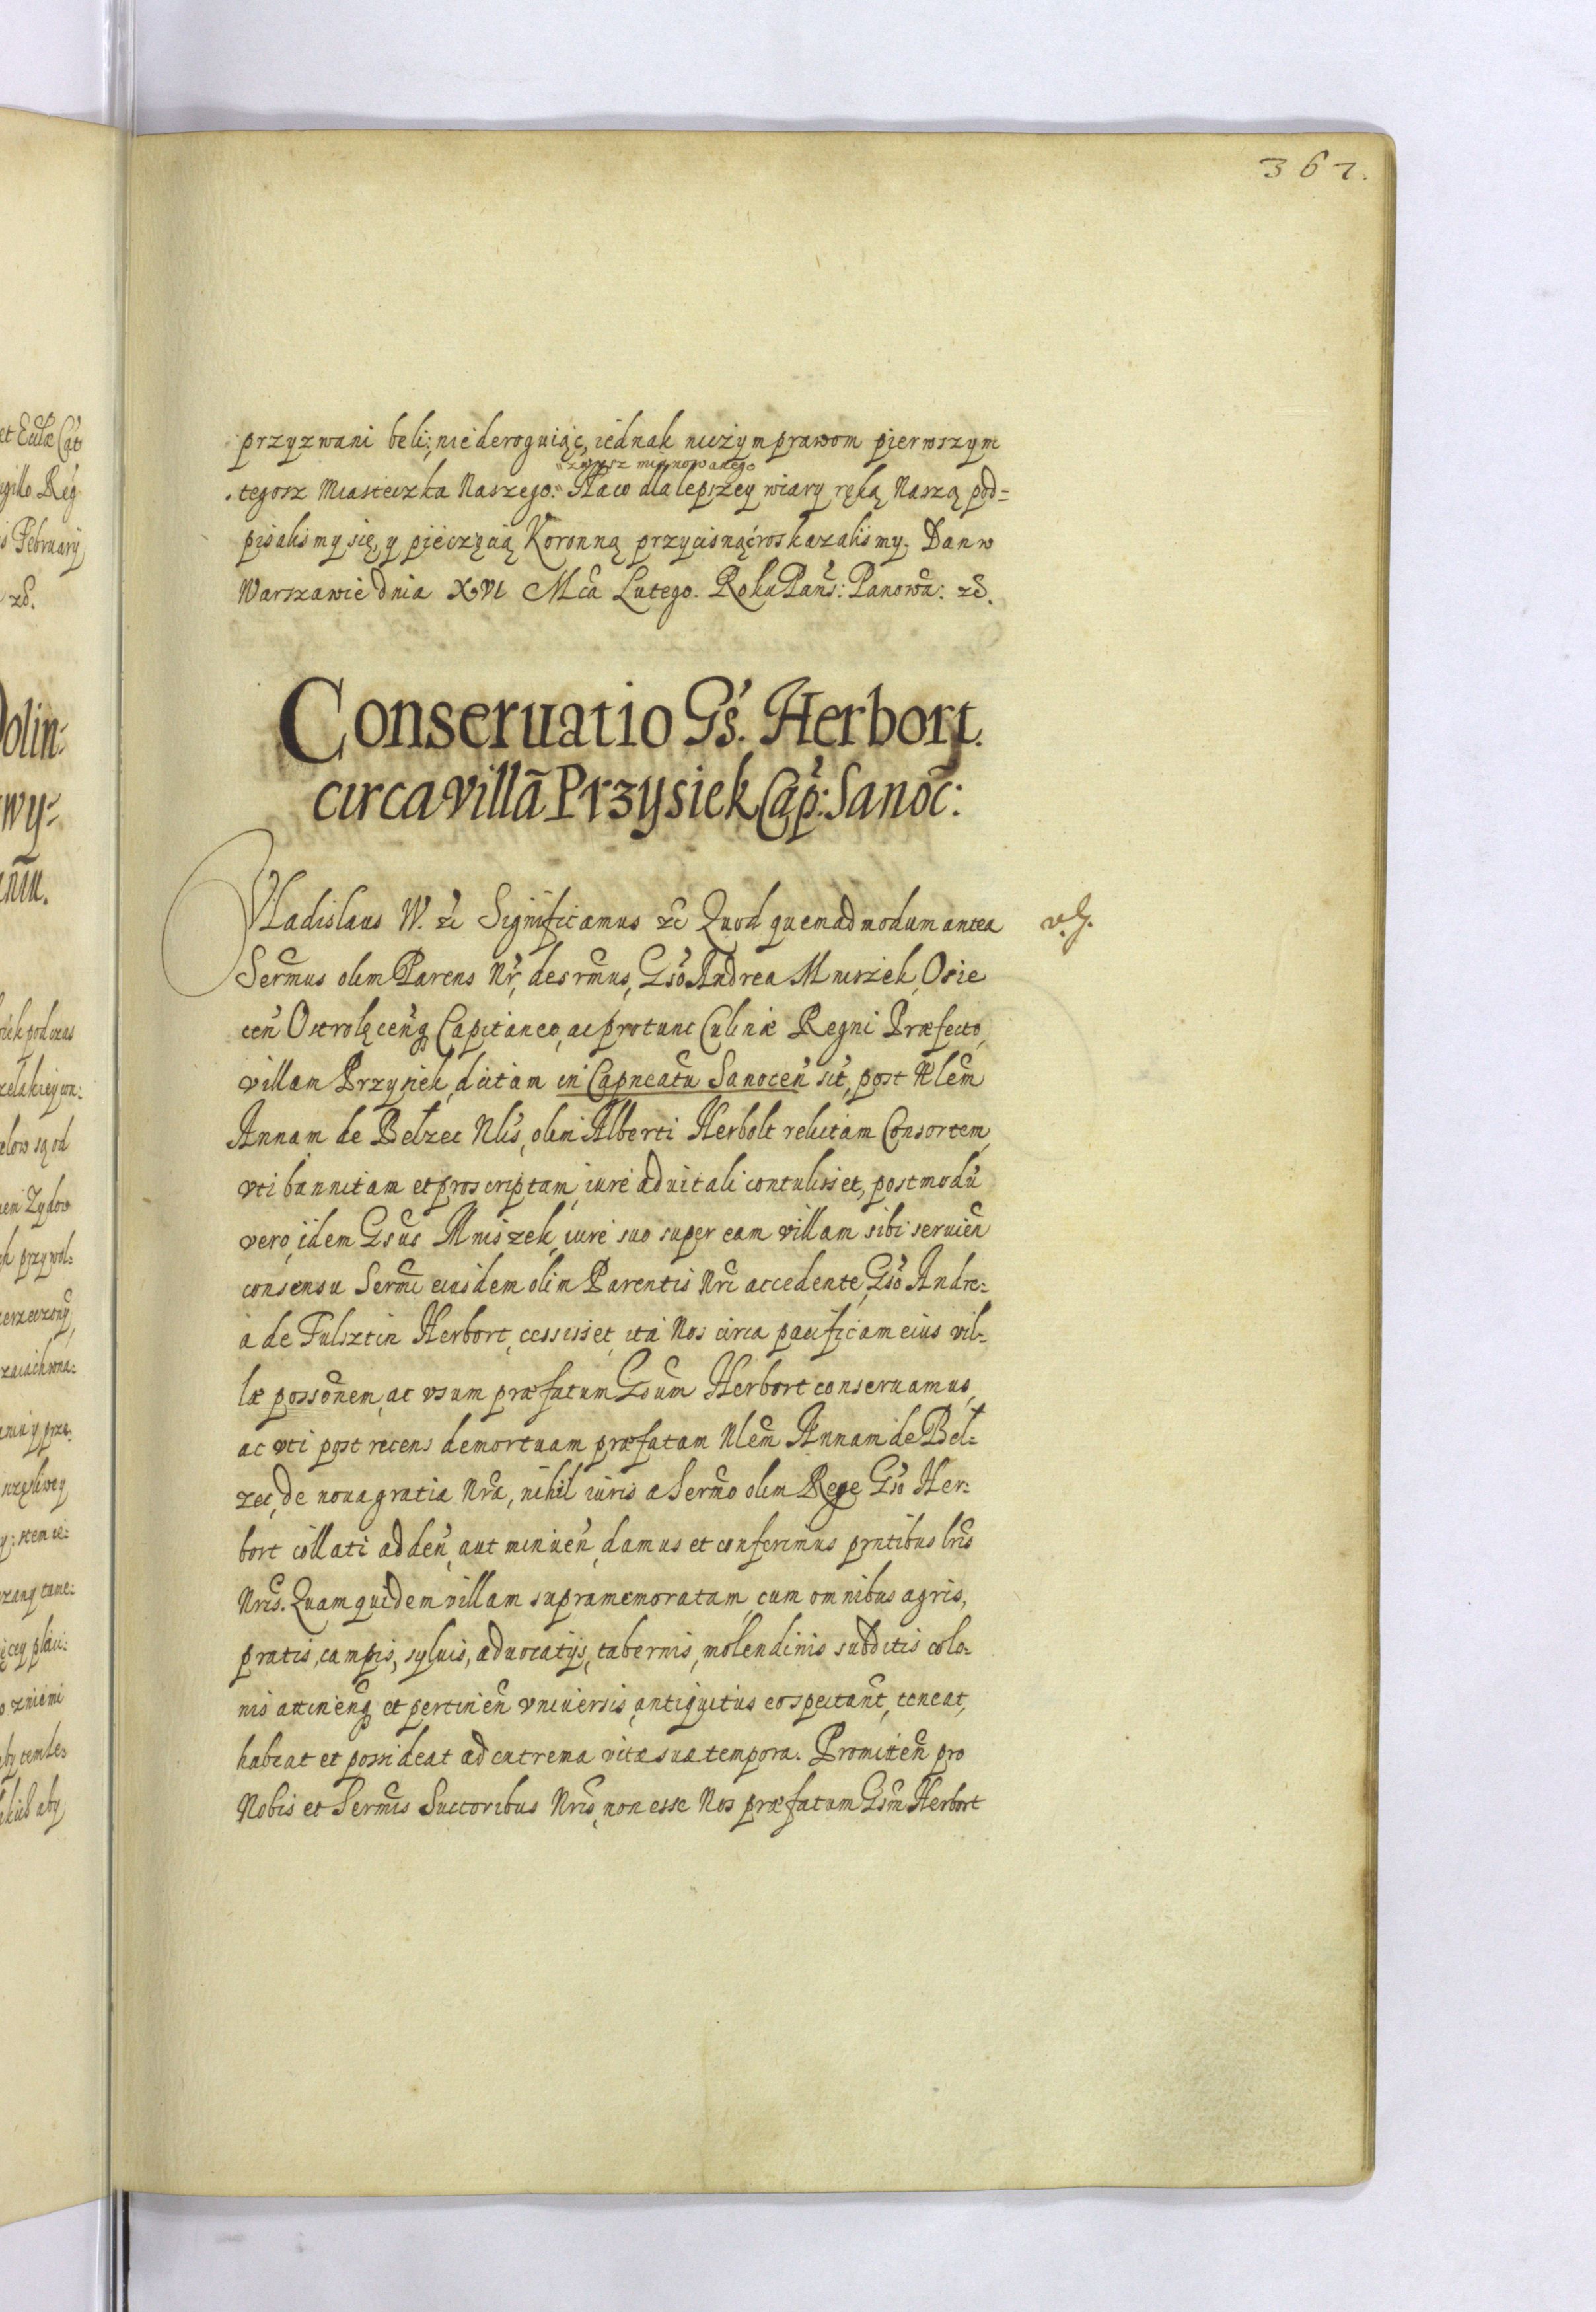 362.
przyzwani beli; niederoguiąc, iednak niczym prawom pierwszym
zwysz mianowanego
tegosz Miasteczka Naszego. Na co dla lepszey wiary ręką Naszą pod=
pisalismy się, y pieczęcią Koronną przycisnąć roskazalismy. Dan w
Warszawie dnia XVI Mca Lutego. Roku Pans: Panowa: zc.
Conseruatio Gs. Herbort.
circa villā Przysiek Cap: Sanoc:
Vladislaus IV. zc Significamus zc Quod quemadmodum antea
v. J.
Sermus olim Parens Nr, desrmus, Gso Andrea Mniszek, Osie
cen Ostrolęcenq Capitaneo, ac protunc Culinæ Regni Præfecto,
villam Przysiek, dictam in Capneatu Sanocen sit, post Nlem
Annam de Bełzec Nlis, olim Alberti Herbolt relictam Consortem,
vti bannitam et proscriptam, iure aduitali contulisset, postmodū
vero, idem Gsus Mniszek, iure suo super eam villam sibi seruien
consensu Sermi eiusdem olim Parentis Nri accedente, Gso Andre=
a de Fulsztin Herbort, cessisset, ita Nos circa pacificam eius vil=
læ possonem, ac vsum præfatum Gsum Herbort conseruamus,
ac vti post recens demortuam præfatam Nlem Annam de Beł=
zec, de noua gratia Nra, nihil iuris a Sermo olim Rege Gso Her=
bort collati adden, aut minuen, damus et conferimus pntibus lris
Nris. Quam quidem villam supramemoratam, cum omnibus agris,
pratis, campis, syluis, aduocatijs, tabernis, molendinis subditis colo=
nis attinenq et pertinen vniuersis, antiquitus eo spectant, teneat,
habeat et possideat ad extrema vitæ suæ tempora. Promitten pro
Nobis et Sermis Succoribus Nris, non esse Nos præfatum Gsm Herbort